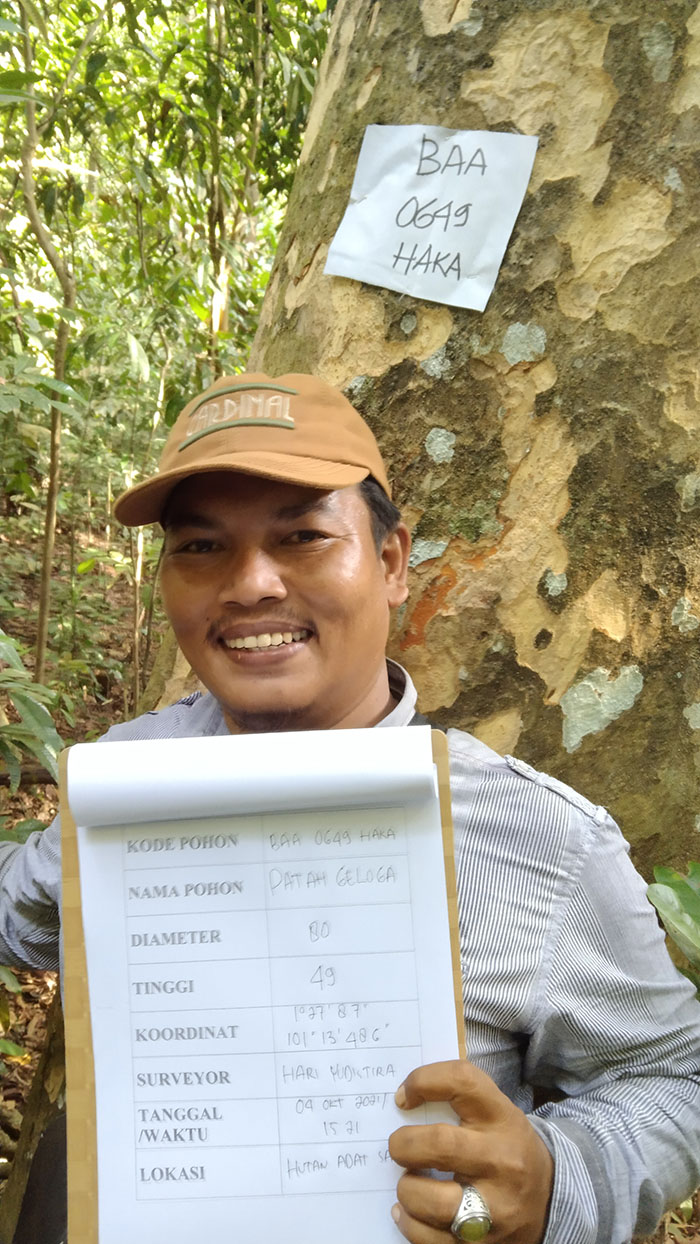 BAA
0649
HAKA
CARDINAL
KODE POHON BAA 0649 HAKA
NAMA POHON DATAH GELOGA
DIAMETER 80
TINGGI 49
KOORDINAT 1°27'
101°13'
SURVEYOR HARI YUDKTIRA
TANGGAL 04 OKT 2021/
/WAKTU 15 21
LOKASI HUTAN ADAT